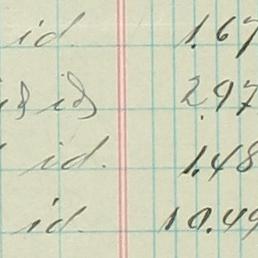 id. 1.67
id 2.97
id. 1.48
id. 10.49